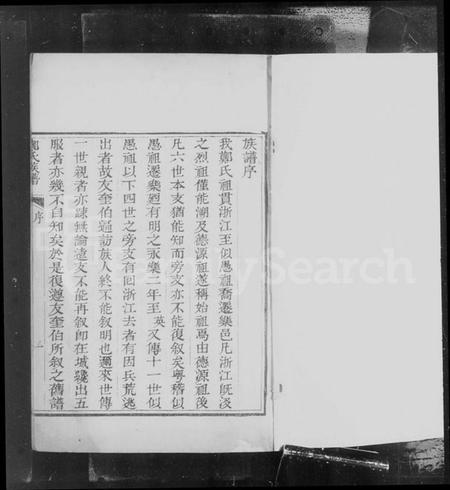 族譜序
我鄭氏祖貫浙江至似愚祖喬遷樂邑凡浙江旣沒
之烈祖僅能溯及德源祖遂稱始祖焉由德源祖後
凡六世本支猶能知而旁支亦不能復叙矣粤稽似
愚祖遷樂廼有明之永樂二年至英又傳十一世似
愚祖以下四世之旁支有回浙江去者有因兵荒逃
出者故友奎伯遍訪族人終不能叙明也邇來世傳
一世親者亦疎無論遠支不能再叙卽在城纔出五
服者亦幾不自知矣於是復遵友奎伯所叙之舊譜
鄭氏族譜
序
一
FamilySearch